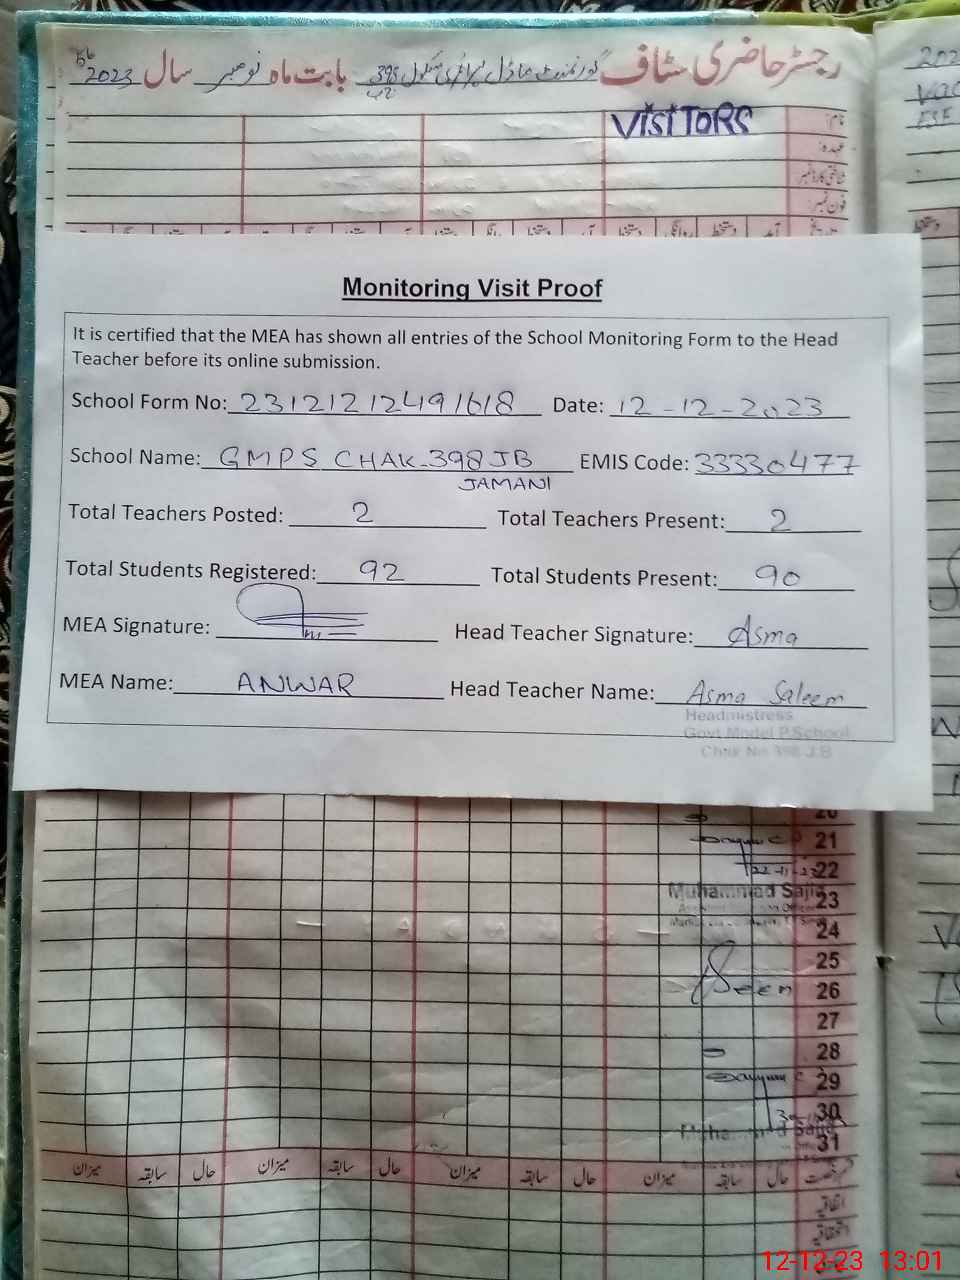 رجسٹر حاضری سٹاف گورنمنٹ ماڈل پرائمری سکول 398 ج ب بابت ماہ نومبر سال 2023
نام:
VISITORS
عہدہ:
شناختی کارڈ نمبر
فون نمبر:
تاریخ آمد دستخط روانگی دستخط
Monitoring Visit Proof
It is certified that the MEA has shown all entries of the School Monitoring Form to the Head
Teacher before its online submission.
School Form No: 23121212491618 Date: 12-12-2023
School Name: GMPS CHAK-398JB EMIS Code: 33330477
JAMANI
Total Teachers Posted: 2 Total Teachers Present: 2
Total Students Registered: 92 Total Students Present: 90
MEA Signature: Head Teacher Signature: Asma
MEA Name: ANWAR Head Teacher Name: Asma Saleem
Headmistress
Govt Model P.School
Chak No 398 J.B
20
21
22-11-23 22
Muhammad Sajid 23
24
25
Seen 26
27
28
29
30
31
رخصت حال سابقہ میزان حال سابقہ میزان حال سابقہ میزان حال سابقہ میزان
اتفاقیہ
استحقاقیہ
12-12-23 13:01